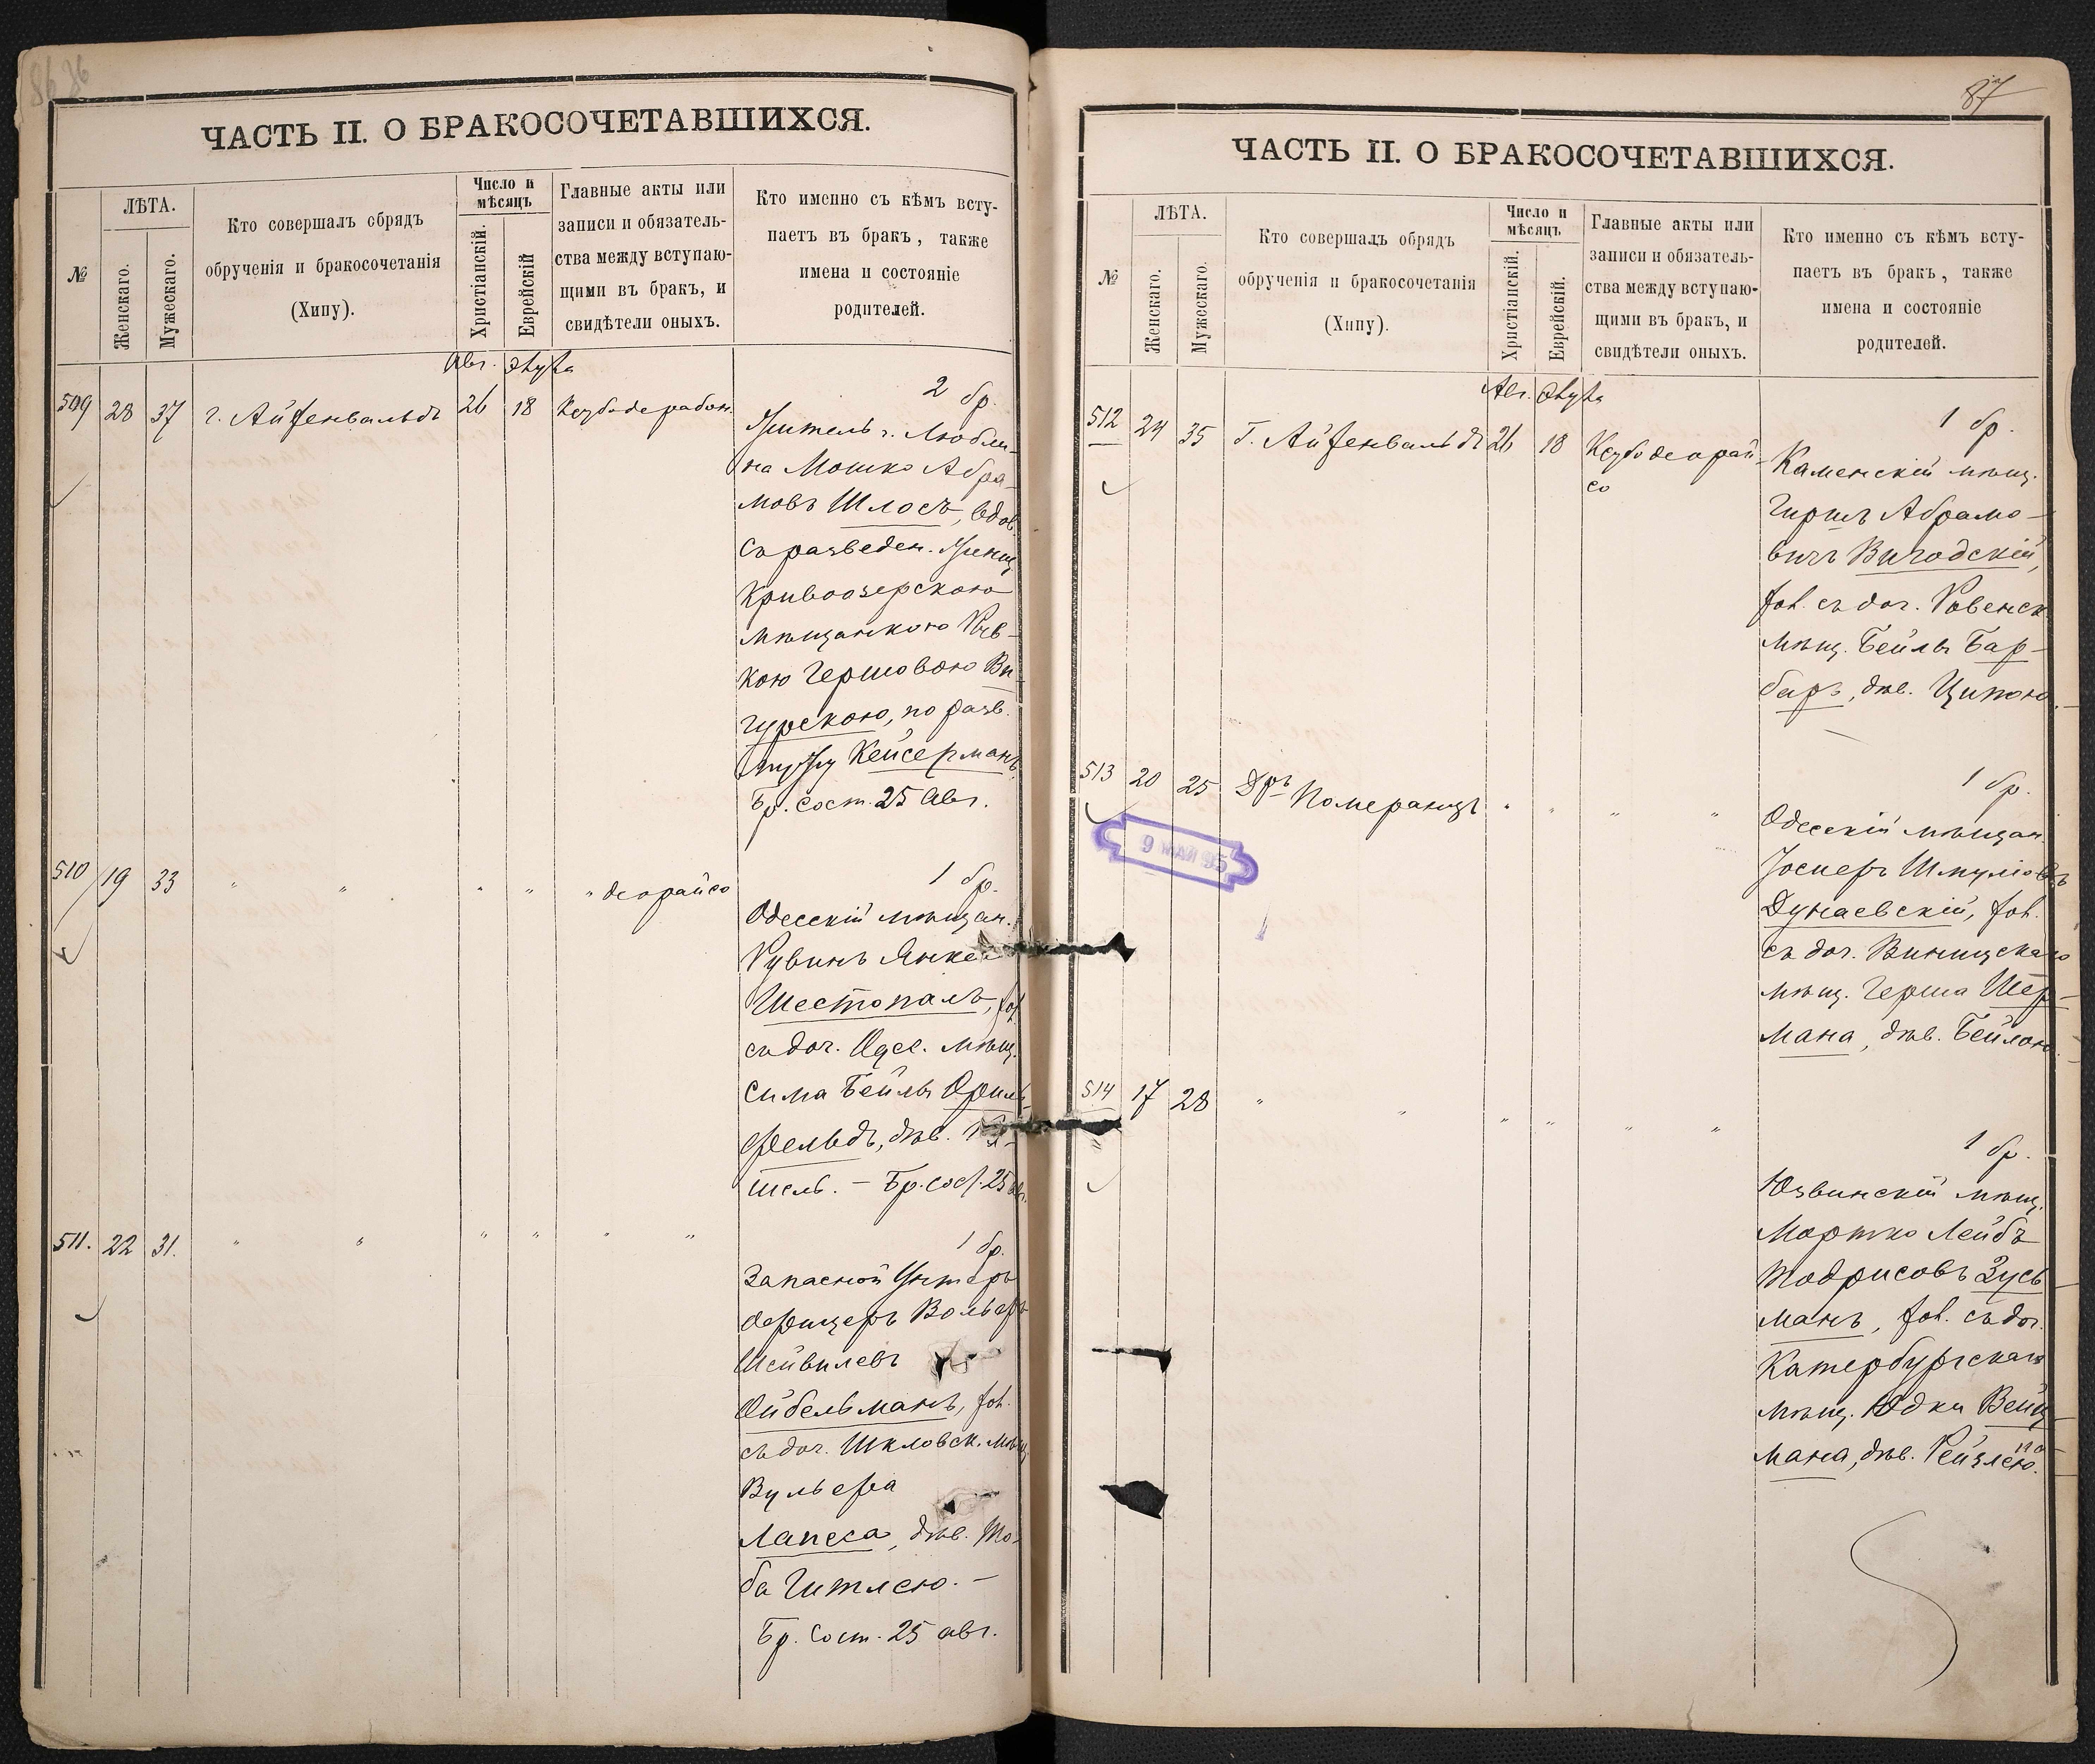 ЧАСТЬ II. О БРАКОСОЧЕТАВШИХСЯ.
№
ЛѢТА.
Женскаго.
Мужескаго.
Кто совершалъ обрядъ
обрученія и бракосочетанія
(Хипу).
Число и
мѣсяцъ
Христіанскій.
Еврейскій
Главные акты или
записи и обязатель-
ства между вступаю-
щими въ бракъ, и
свидѣтели оныхъ.
Кто именно съ кѣмъ всту-
паетъ въ бракъ, также
имена и состояніе
родителей.
Авг. Элула
509 28 37 г. Айзенвальдъ 26 18 Ксубо дерабон.
2 бр.
Житель г. Любли-
на Мошко Абра-
мовъ Шлосъ, вдов.
съ разведен. женщ.
Кривоозерскою
мѣщанкою Рив-
кою Гершовою Ви-
гурскою, по разв.
мужу Кейсерманъ
Бр. сост. 25 Авг.
510 19 33 " " " " " деорайсо
1 бр.
Одесскій мѣщан.
Рувинъ Янкел
Шестопалъ, хол.
съ доч. Одес. мѣщ.
Сима Бейлы Орил
фельдъ, дѣв.
шель. – Бр. сост. 25 авг.
511. 22 31. " " " " " "
1 бр.
Запасной Унтеръ
офицеръ Вольфъ
Шейвилевъ
Ойбельманъ, хол.
съ доч. Шкловск. мѣщ.
Вульфа
Лапеса, дѣв. То-
ба Гитлею. –
Бр. Сост. 25 авг.
87
ЧАСТЬ II. О БРАКОСОЧЕТАВШИХСЯ.
№
ЛѢТА.
Женскаго.
Мужескаго.
Кто совершалъ обрядъ
обрученія и бракосочетанія
(Хипу).
Число и
мѣсяцъ
Христіанскій.
Еврейскій.
Главные акты или
записи и обязатель-
ства между вступаю-
щими въ бракъ, и
свидѣтели оныхъ.
Кто именно съ кѣмъ всту-
паетъ въ бракъ, также
имена и состояніе
родителей.
Авг. Элула
512 24 35 Г. Айзенвальдъ 26 18 Ксубо деорай-
со
1 бр.
Каменскій мѣщ.
Гиршъ Абрамо-
вичъ Вигодскій,
хол. съ доч. Ровенск.
мѣщ. Бейлы Бар-
баръ, дѣв. Ципою.
513 20 25 Дръ Померанцъ " " " "
9 МАЙ 95
1 бр.
Одесскій мѣщан.
Іосифъ Шмулiовъ
Дунаевскій, хол.
съ доч. Виницскаго
мѣщ. Герша Шер-
мана, дѣв. Бейлою.
514 17 28 " " " " " "
1 бр.
Юзвинскій мѣщ.
Мортко Лейбъ
Тодрисовъ Зусь-
манъ, хол. съ доч.
Катербургскаго
мѣщ. Юдки Вейц-
мана, дѣв. Рейзлею.